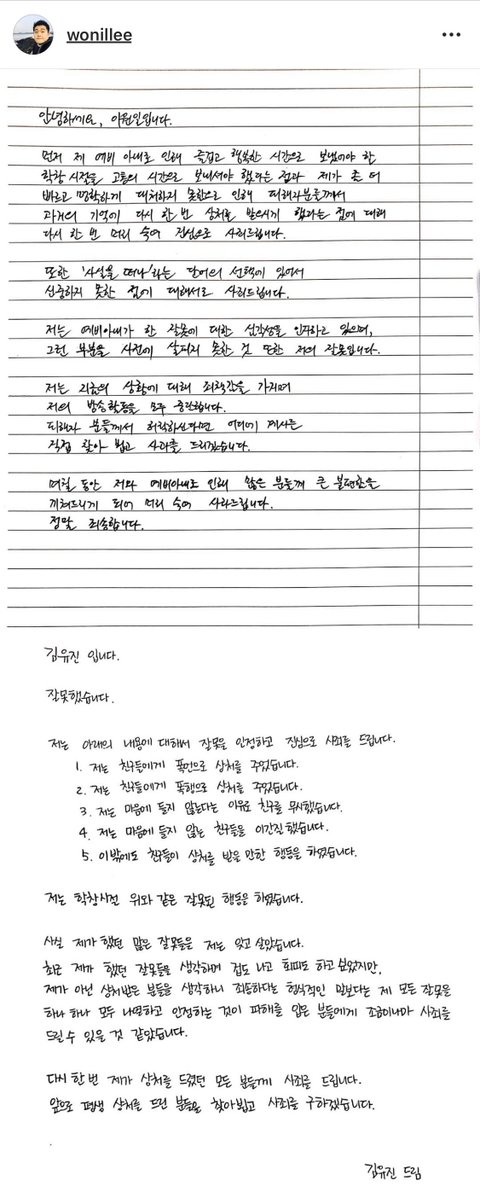 wonillee
안녕하세요, 이원일입니다.
먼저 제 예비 아내로 인해 즐겁고 행복한 시간으로 보냈어야 할
학창 시절을 고통의 시간으로 보내셔야 했다는 점과 제가 좀 더
빠르고 명확하게 대처하지 못함으로 인해 피해자분들께서
과거의 기억에 다시 한 번 상처를 받으시게 했다는 점에 대해
다시 한 번 머리 숙여 진심으로 사죄드립니다.
또한 '사실을 떠나'라는 단어의 선택에 있어서
신중하지 못한 점에 대해서도 사죄드립니다.
저는 예비아내가 한 잘못에 대한 심각성을 인지하고 있으며,
그런 부분을 사전에 살피지 못한 것 또한 저의 잘못입니다.
저는 지금의 상황에 대해 죄책감을 가지며
저의 방송활동을 모두 중단합니다.
피해자 분들께서 허락하신다면 어디에 계시든
직접 찾아 뵙고 사죄를 드리겠습니다.
며칠 동안 저와 예비아내로 인해 많은 분들께 큰 불편함을
끼쳐드리게 되어 머리 숙여 사과드립니다.
정말 죄송합니다.
김유진 입니다.
잘못했습니다.
저는 아래의 내용에 대해서 잘못을 인정하고 진심으로 사죄를 드립니다.
1. 저는 친구들에게 폭언으로 상처를 주었습니다.
2. 저는 친구들에게 폭행으로 상처를 주었습니다.
3. 저는 마음에 들지 않는다는 이유로 친구를 무시했습니다.
4. 저는 마음에 들지 않는 친구들을 이간질 했습니다.
5. 이밖에도 친구들이 상처를 받을 만한 행동을 하였습니다.
저는 학창시절 위와 같은 잘못된 행동을 하였습니다.
사실 제가 했던 많은 잘못들을 저는 잊고 살았습니다.
최근 제가 했던 잘못들을 생각하며 겁도 나고 회피도 하고 싶었지만,
제가 아닌 상처받은 분들을 생각하니 죄송하다는 형식적인 말보다는 제 모든 잘못을
하나 하나 모두 나열하고 인정하는 것이 피해를 입은 분들에게 조금이나마 사죄를
드릴 수 있을 것 같았습니다.
다시 한번 제가 상처를 드렸던 모든 분들께 사죄를 드립니다.
앞으로 평생 상처를 드린 분들을 찾아뵙고 사죄를 구하겠습니다.
김유진 드림